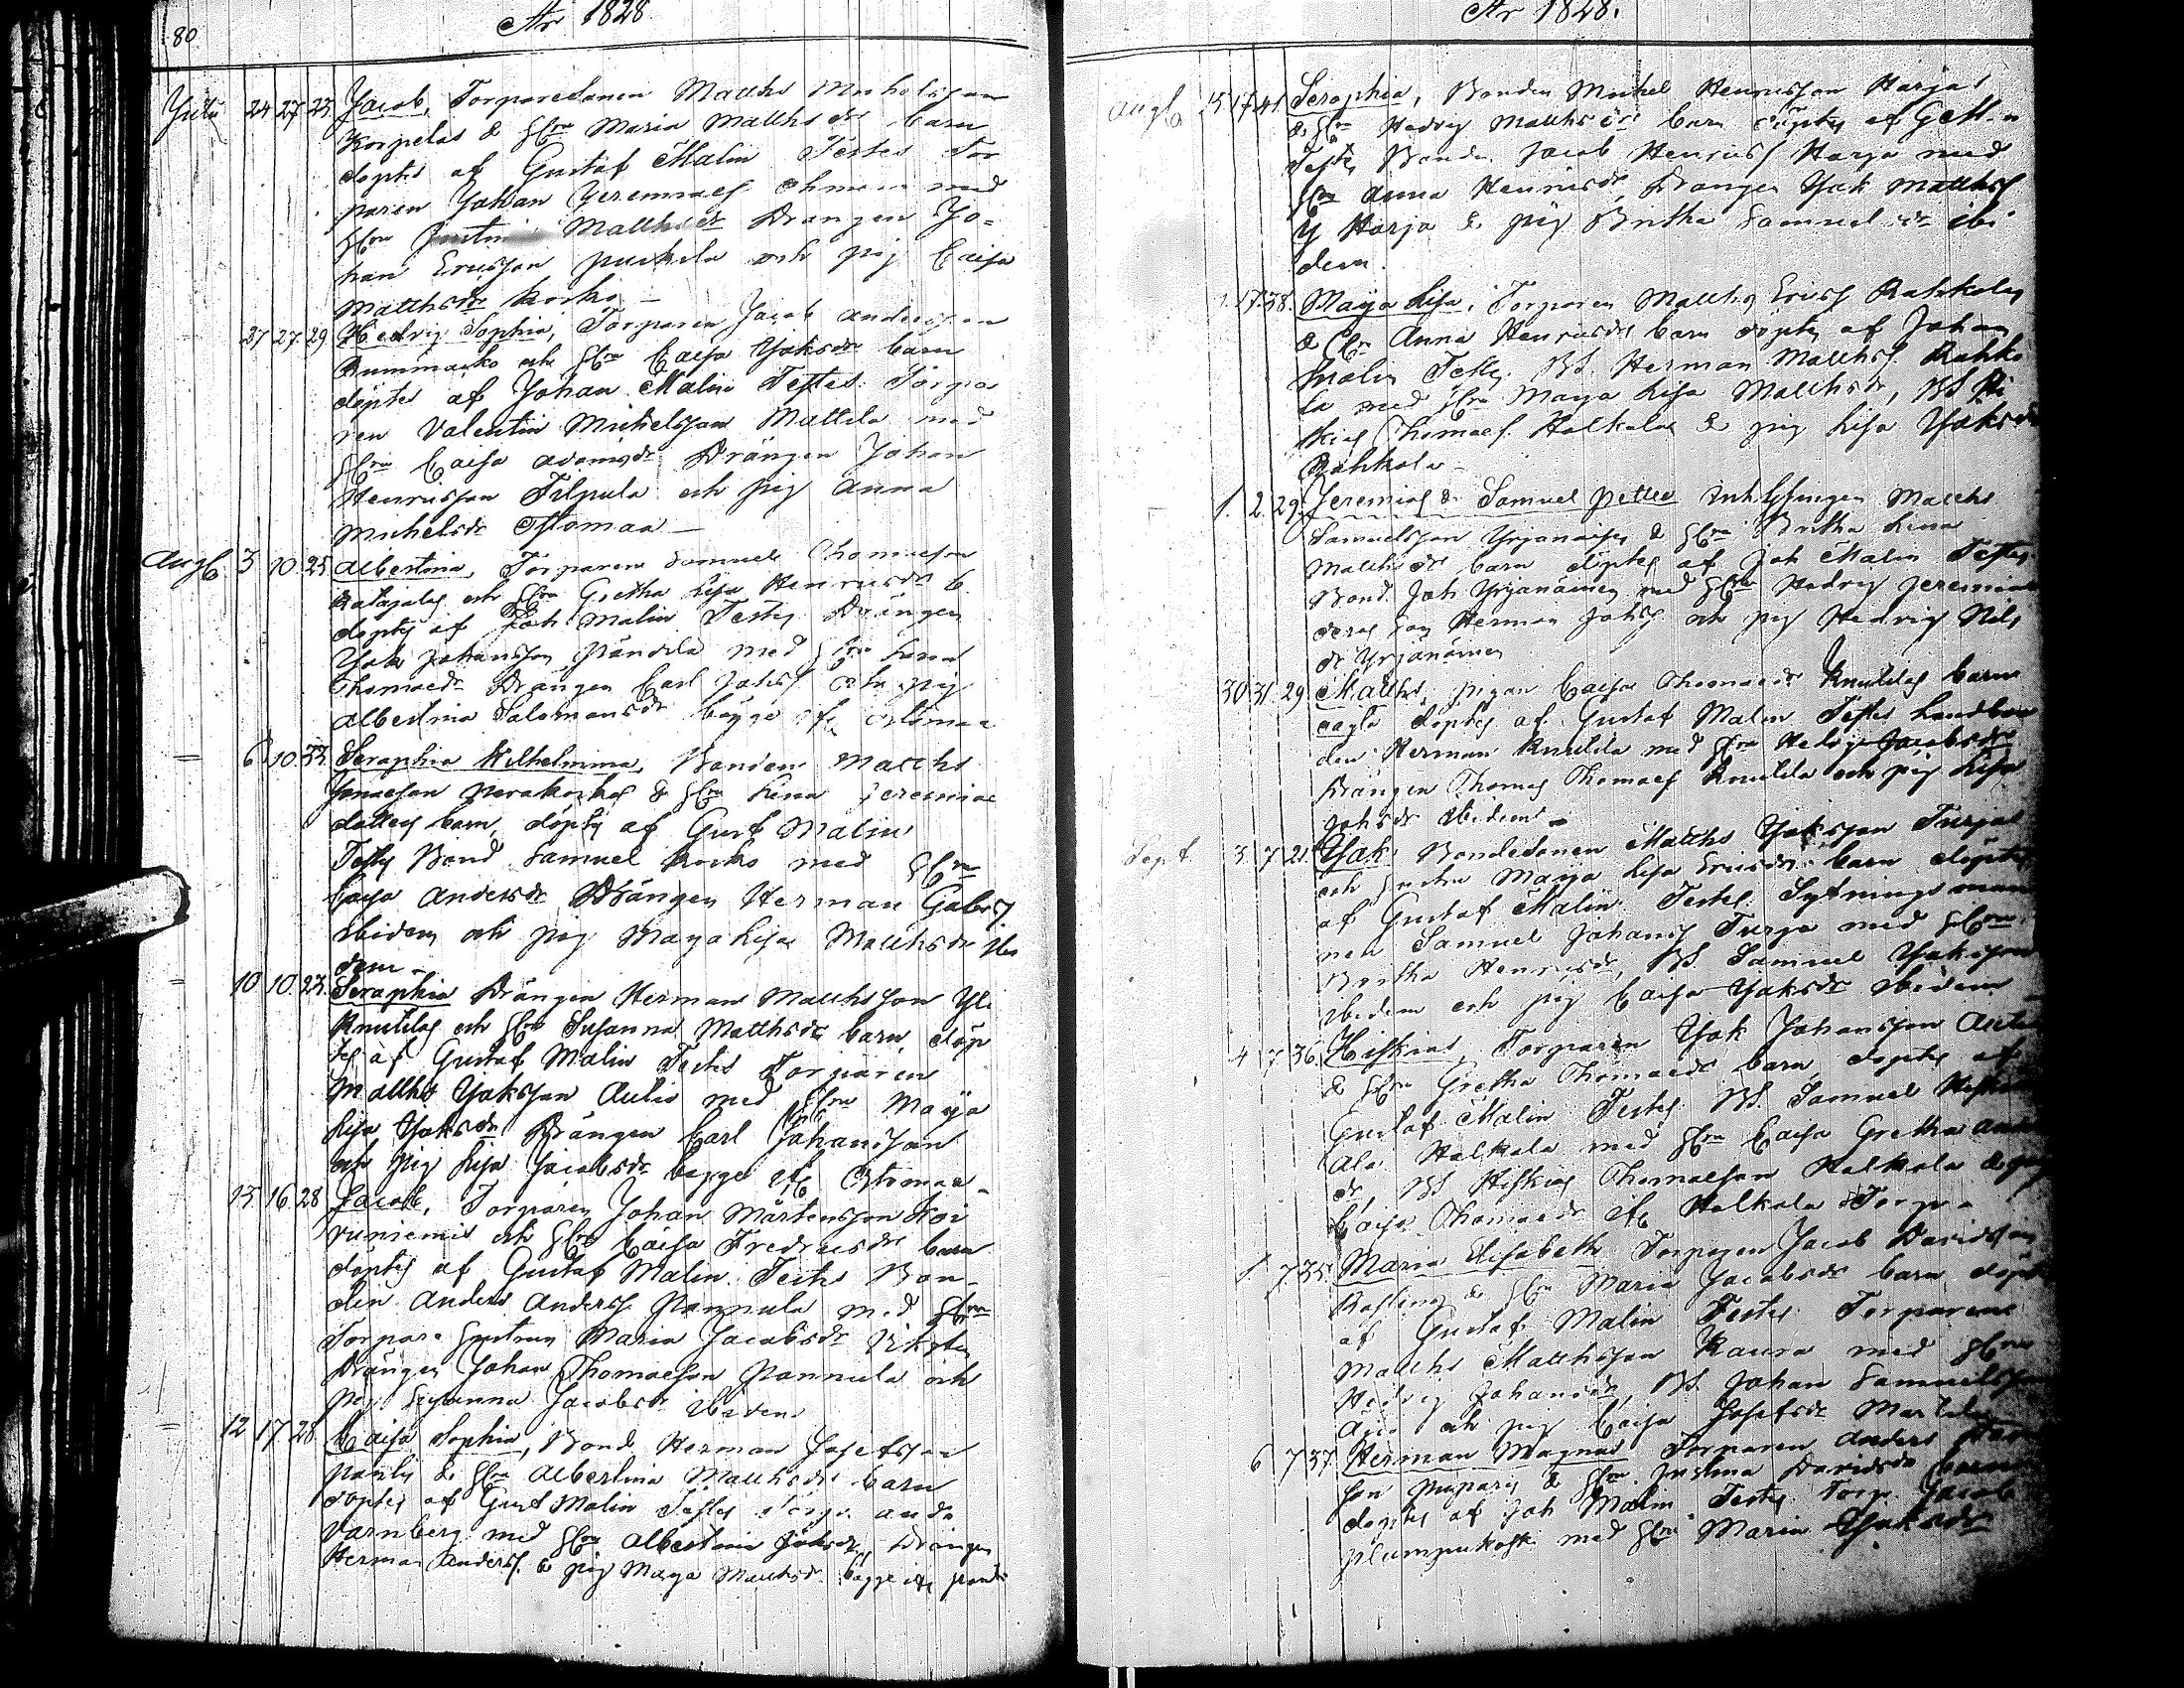 80
År 1828.
Julii 24 27 23 Jacob, Torparesonen Matths Michelsson
Korpelas & Hru Maria Matthsdrs barn
döptes af Gustaf Malin Testes Tor
paren Johan Jeremiaes med
Hru Matthsdr Drängen Jo=
han Ericsson Puckila och pig Caisa
Matthsdr Korko
27 27 29 Hedvig Sophia, Torparen Jacob Andersson
och Hru Caisa Jaksdrs barn
döptes af Johan Malin Testes Torpa
ren Valentin Michelsson Mattila med
Hru Caisa Adamsdr Drängen Johan
Henricsson Filpula och pig Anna
Michelsdr
Aug. 3 10 25 Albertina, Torparen Samuel Thomasson
Ratajalas och Hru Gretha Lisa Henricsdrs b.
döptes af Joh Malin Testes Drängen
Jak Johansson med Hru Lena
Thomasdr Drängen Carl Johss och pig
Albertina Salomonsdr bägge ifr
6 10 33 Seraphia Wilhelmina, Bonden Matths
& Hru Lena Jeremiae
dotters barn, döptes af Gust Malin
Testes Bond Samuel Korko med Hru
Caisa Andersdr Drängen Herman Gabrs
ibidem och pig Maja Lisa Matthsdr ibi
dem
10 10 23 Seraphia Drängen Herman Matthsson Yli
Knutilas och Hru Susanna Matthsdrs barn, döp
tes af Gustaf Malin Testes Torparen
Matths Jaksson Aulio med Hru Maja
Lisa Jaksdr Drängen Carl Johansson
och pig Lisa Jacobsdr bägge ifr
15 16 28 Jacob, Torparen Johan Mårtensson Koi
vuniemis och Hru Caisa Fredricsdrs barn
döptes af Gustaf Malin Testes Bon-
den Anders Anderss Pannula med Hru
Torpare Hustrun Maria Jacobsdr
Drängen Johan Thomasson Pannula och
pig Susanna Jacobsdr ibidem
12 17 28 Caisa Sophia, Bond Herman Josefsson
& Hru Albertina Matthsdrs barn
döptes af Gust Malin Testes Torp. Ands
Varnberg med Hru Albertina Johsdr, Drängen
Herman Anderss & pig Maja Matthsdr bägge ifr
År 1828.
Aug. 15 17 41 Seraphia, Bonden Michel Henricsson Harjas
& Hru Hedvig Matthsdrs barn döptes af G M-n
Testes Bonden Jacob Henricss Harja med
Hru Anna Henricsdr, Drängen Jak Matthss
Y Harja & pig Britha Samuelsdr ibi
dem.
17 38 Maja Lisa, Torparen Matths Ericss Rahkolas
& Hru Anna Henricsdrs barn döptes af Johan
Malin Testes BS. Herman Matthss Rahko
la med Hru Maja Lisa Matthsdr, BS Hi
skias Thomass Halkola & pig Lisa Jaksdr
Rahkola
1. 2. 29 Jeremias & Samuel Petter Inhysingen Matths
Samuelsson Yrjanäises & Hru Britha Lena
Matthsdrs barn döptes af Joh Malin Testes
Bond. Joh Yrjanäinen med Hru Hedvig Jeremiae
deras son Herman Johss och pig Hedvig Nils
dr Yrjanäinen
30 31 29 Matths, pigan Caisa Thomasdr Knutilas barn
oägta döptes af Gustaf Malin Testes Landbon
den Herman Knutila med Hru Hedvig Jacobsdr
Drängen Thomas Thomass Knutila och pig Lisa
Johsdr ibidem
Sept. 3 7 21 Jak Bondesonen Matths Jaksson Turjas
och hustru Maja Lisa Ericsdrs barn döptes
af Gustaf Malin Testes Sytningsman
nen Samuel Johanss Turja med Hru
Britha Henricsdr, BS. Samuel Jaksson
ibidem och pig Caisa Jaksdr ibidem
4 7 36 Hiskias, Torparen Jak Johansson
& Hru Gretha Thomasdrs barn döptes af
Gustaf Malin Testes BS. Samuel
Ala Halkola med Hru Caisa Gretha
dr BS Hiskias Thomasson Halkola & pig
Caisa Thomasdr ifr Halkola Torp
1 7 35 Maria Elisabeth Torparen Jacob Davidsson
& Hru Maria Jacobsdrs barn döpt
af Gustaf Malin Testes Torparen
Matths Matthsson Kaura med Hru
Hedvig Johansdr, BS. Johan Samuelsson
och pig Caisa Josefsdr
6 7 37 Herman Magnus Torparen Anders
son & Hru Justina Davidsdrs barn
döptes af Joh Malin Testes Torp. Jacob
med Hru Maria Jaksdr